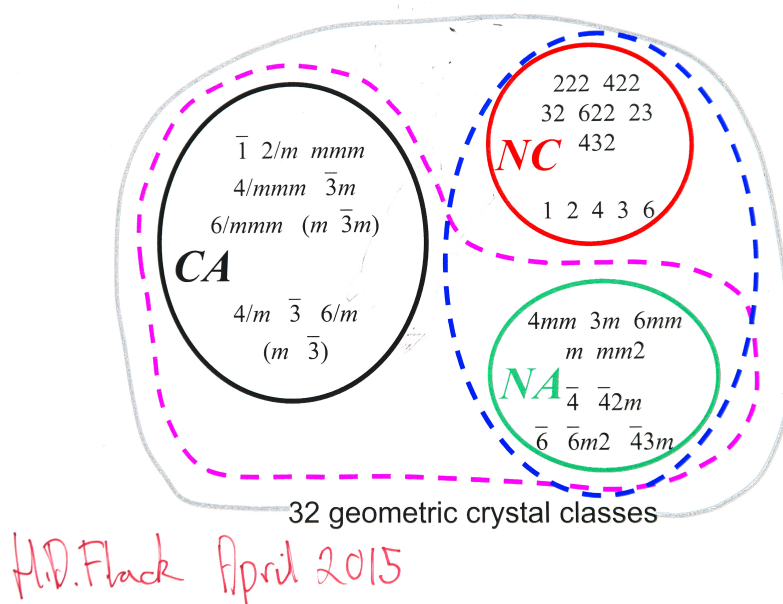 1̅ 2/m mmm
4/mmm 3̅m
6/mmm (m 3̅m)
CA
4/m 3̅ 6/m
(m 3̅)
222 422
32 622 23
432
NC
1 2 4 3 6
4mm 3m 6mm
m mm2
NA
4̅ 4̅2m
6̅ 6̅m2 4̅3m
32 geometric crystal classes
H.D. Flack April 2015